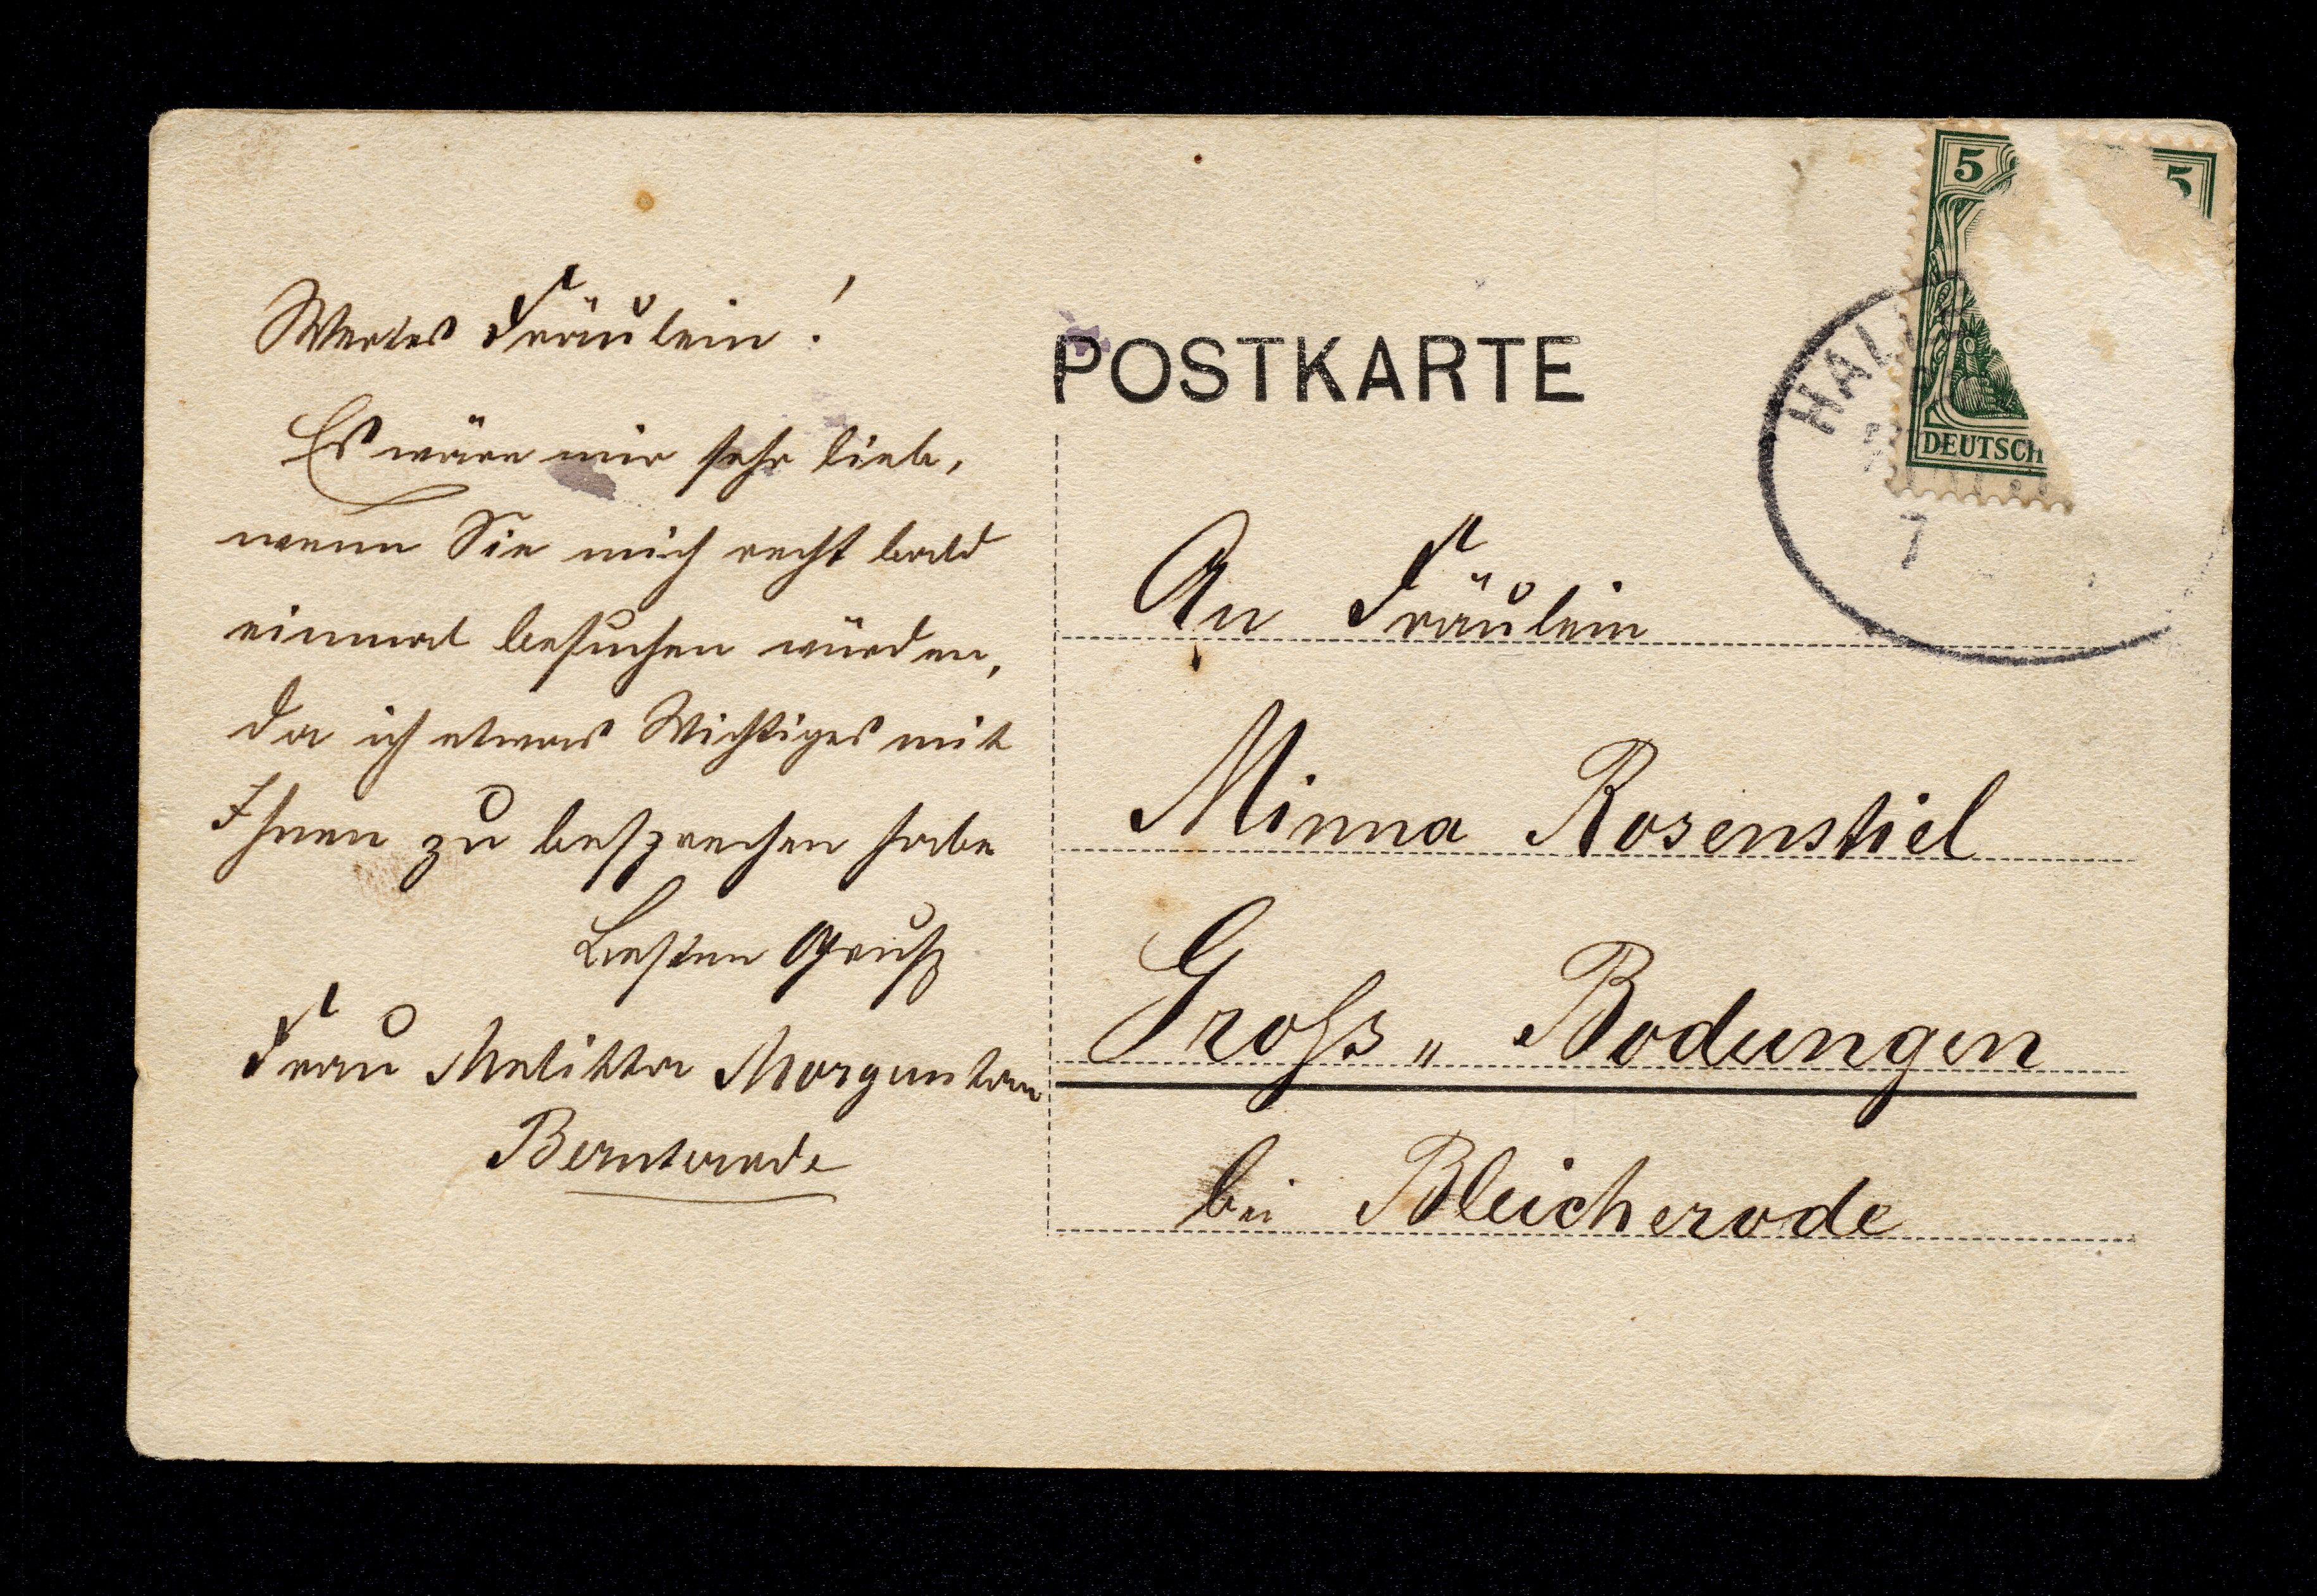 Wertes Fräulein!
Es wäre mir sehr lieb,
wenn Sie mich recht bald
einmal besuchen würden,
da ich etwas Wichtiges mit
Ihnen zu besprechen habe
Besten Gruß
Frau Melitta
Bernterode
POSTKARTE
5 5
DEUTSCH
HALLE
7
An Fräulein
Minna Rosenstiel
Gross „ Bodungen
bei Bleicherode